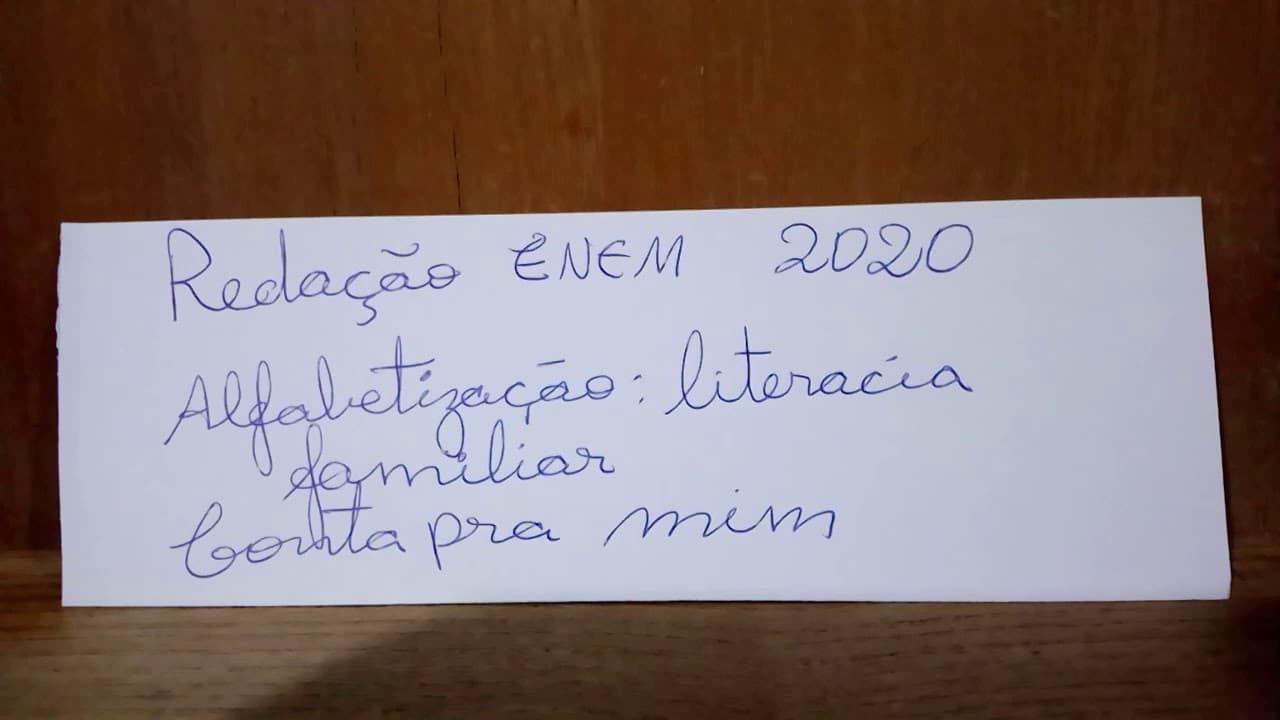 Redação ENEM 2020
Alfabetização: literacia
familiar
Conta pra mim